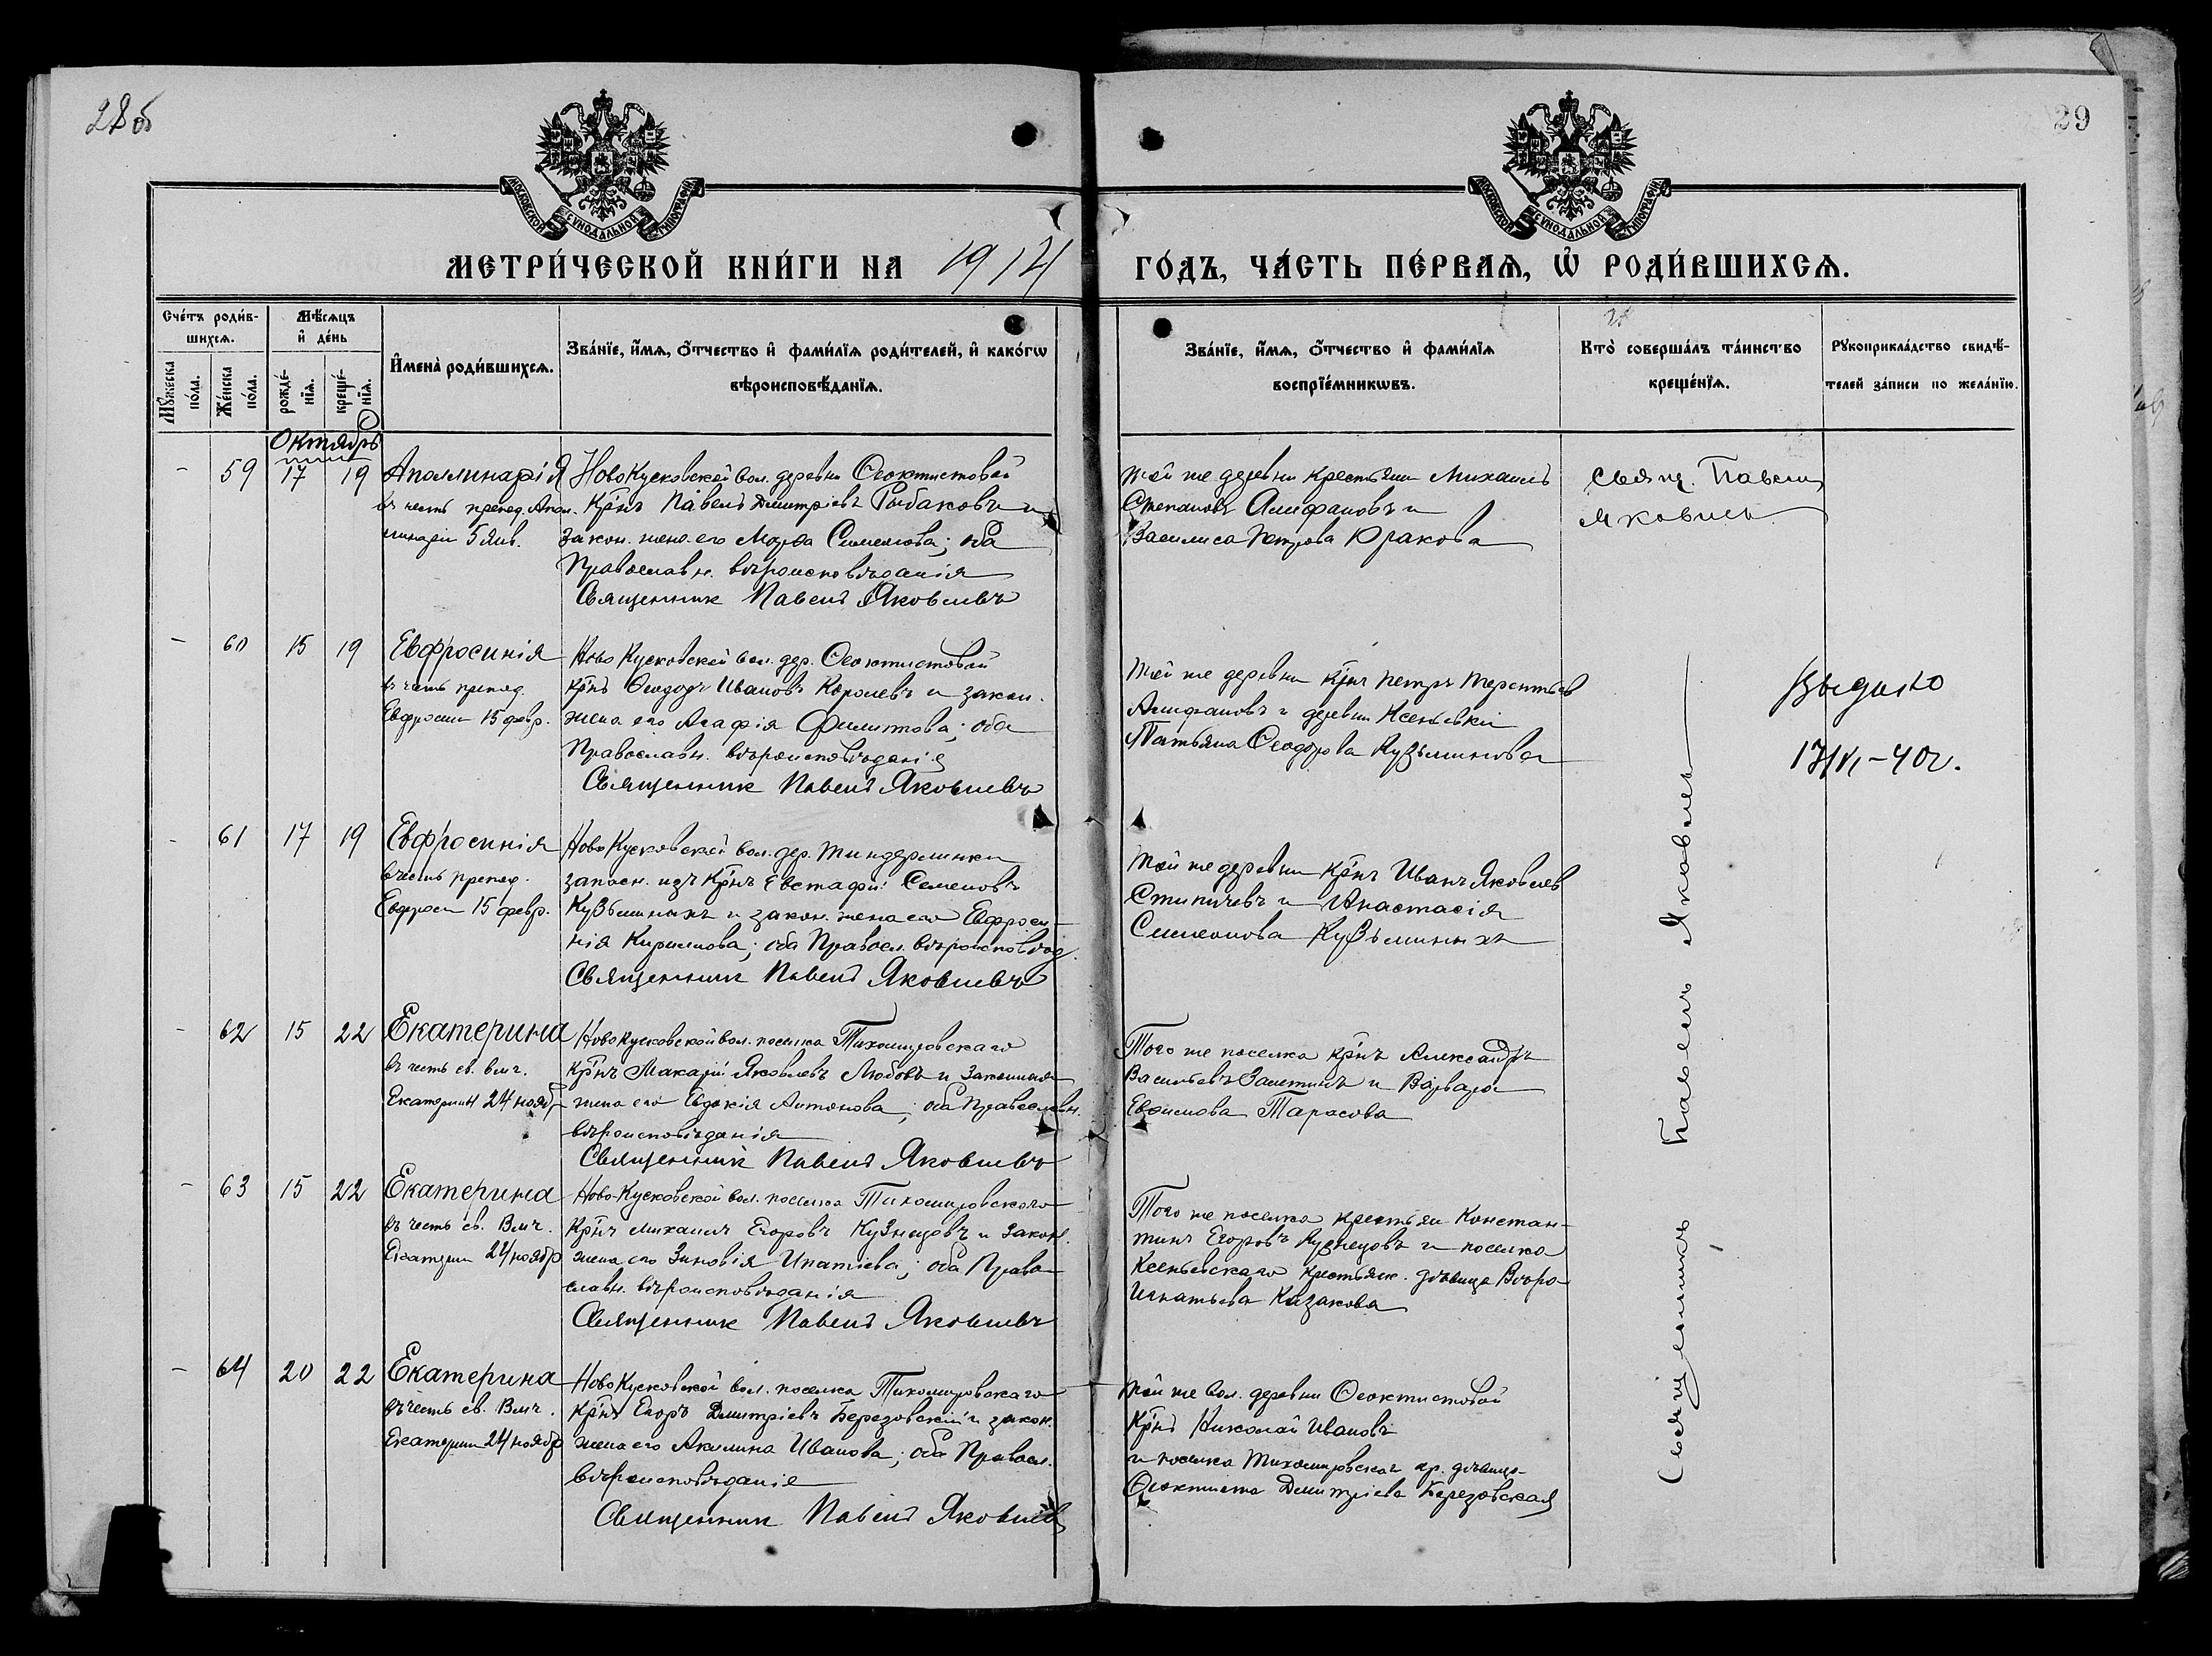 28об
29
МОСКОВСКОЙ СѴНОДАЛЬНОЙ ТИПОГРАФІИ
МОСКОВСКОЙ СѴНОДАЛЬНОЙ ТИПОГРАФІИ
МЕТРИ́ЧЕСКОЙ КНИ́ГИ НА 1914 ГО́ДЪ, ЧА́СТЬ ПЕ́РВАѦ, Ѡ҆ РОДИ́ВШИХСѦ.
Сче́тъ роди́в-
шихсѧ.
Мѣ́сѧцъ
и҆ де́нь
Мꙋ́жеска
по́ла.
Же́нска
по́ла.
рожде́-
нїѧ.
креще́-
нїѧ.
И҆мена̀ роди́вшихсѧ.
Зва́нїе, и҆́мѧ, ѻ҆́тчество и҆ фами́лїѧ роди́телей, и҆ како́гѡ
вѣроисповѣ́данїѧ.
Зва́нїе, и҆́мѧ, ѻ҆́тчество и҆ фами́лїѧ
воспрїе́мникѡвъ.
Кто̀ соверша́лъ та́инство
креще́нїѧ.
Рꙋкоприкла́дство свидѣ́-
телей за́писи по жела́нїю.
Октябрь
- 59 17 19 Аполлинарія
въ честь препод. Апол-
линаріи 5 Янв.
НовоКусковской вол. деревни Ѳеоктистовой
Кр̃нъ Павелъ Димитріевъ Рыбаковъ и
закон. жена его Марѳа Симеонова; оба
Православн. вѣроисповѣданія
Священникъ Павелъ Яковлевъ
Той же деревни крестьянин Михаилъ
Степановъ Алифановъ и
Василиса Петрова Юракова
Свящ. Павелъ
Яковлевъ
- 60 15 19 Евфросинія
въ честь препод.
Евфросин 15 февр.
Ново Кусковской вол. дер. Ѳеоктистовой
кр̃нъ Ѳеодоръ Ивановъ Королевъ и закон.
жена его Агафія Филиппова; оба
Православн. вѣроисповѣданія
Священникъ Павелъ Яковлевъ
Той же деревни кр̃нъ Петръ Терентьев
Алифановъ и деревни Ксеньевки
Татьяна Ѳеодорова Кузьминова
Выдано
17/VI-40г.
- 61 17 19 Евфросинія
въ честь препод.
Евфросин 15 февр.
Ново Кусковской вол. дер. Тиндерлинки
запасн. изъ кр̃нъ Евстафій Семеновъ
Кузьминыхъ и закон. жена его Евфроси-
нія Кириллова; оба Правосл. вѣроисповѣд.
Священникъ Павелъ Яковлевъ
Той же деревни кр̃нъ Иванъ Яковлев
и Анастасія
Симеонова Кузьминыхъ
- 62 15 22 Екатерина
въ честь св. влмч.
Екатерины 24 ноябр
НовоКусковской вол. поселка Тихомировскаго
кр̃нъ Макарій Яковлевъ Любовъ и законная
жена его Евдокія Антонова; оба Православн.
вѣроисповѣданія
Священникъ Павелъ Яковлевъ
Того же поселка кр̃нъ Александръ
Васильевъ и Варвара
Евѳимова Тарасова
- 63 15 22 Екатерина
въ честь св. Влмч.
Екатерин 24 ноябр
Ново-Кусковской вол. поселка Тихомировскаго
Кр̃нъ Михаилъ Егоровъ Кузнецовъ и Закон.
жена его Зиновія Ипатіева; оба Право-
славн. вѣроисповѣданія
Священникъ Павелъ Яковлевъ
Того же поселка крестьян Констан-
тинъ Егоровъ Кузнецовъ и поселка
Ксеньевскаго крестьянс. дѣвица Вѣра
Игнатьева Казакова
- 64 20 22 Екатерина
въ честь св. Влмч.
Екатерин 24 ноябр
НовоКусковской вол. поселка Тихомировскаго
Кр̃нъ Егоръ Димитріевъ Березовскій и закон.
жена его Акилина Иванова; оба Правосл.
вѣроисповѣданія
Священникъ Павелъ Яковлев
Той же вол. деревни Ѳеоктистовой
Кр̃нъ Николай Ивановъ
и поселка Тихомировскаг кр. дѣвица
Ѳеоктиста Димитріева Березовская
Священникъ Павелъ Яковлевъ